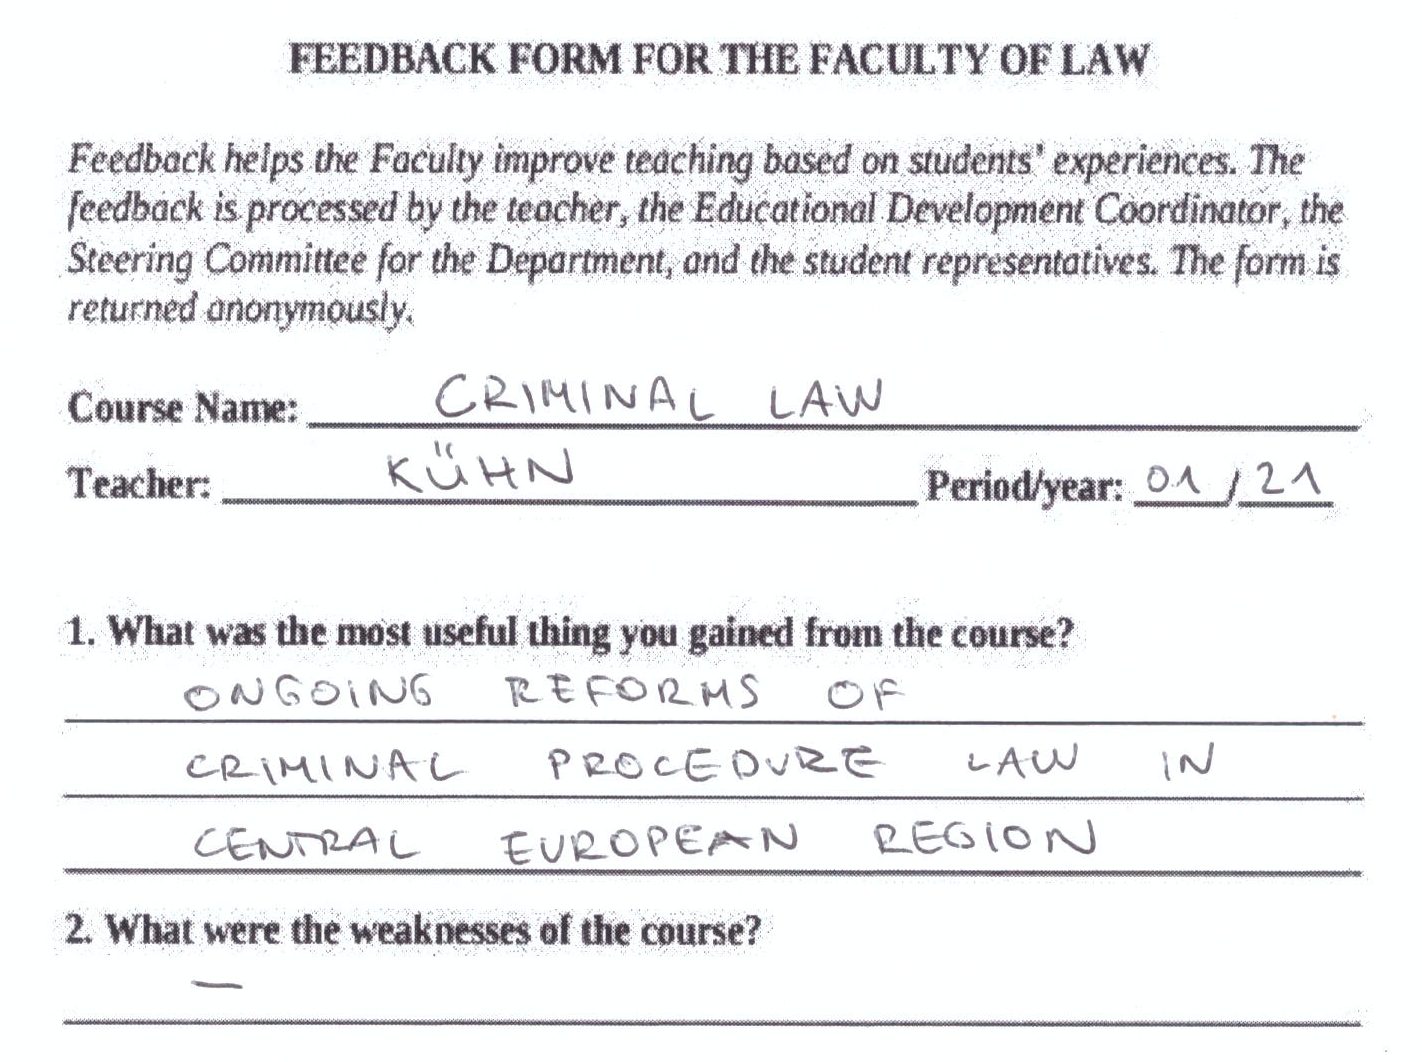 FEEDBACK FORM FOR THE FACULTY OF LAW
Feedback helps the Faculty improve teaching based on students' experiences. The
feedback is processed by the teacher, the Educational Development Coordinator, the
Steering Committee for the Department, and the student representatives. The form is
returned anonymously.
Course Name: CRIMINAL LAW
Teacher: KÜHN Period/year: 01/21
1. What was the most useful thing you gained from the course?
ONGOING REFORMS OF
CRIMINAL PROCEDURE LAW IN
CENTRAL EUROPEAN REGION
2. What were the weaknesses of the course?
—